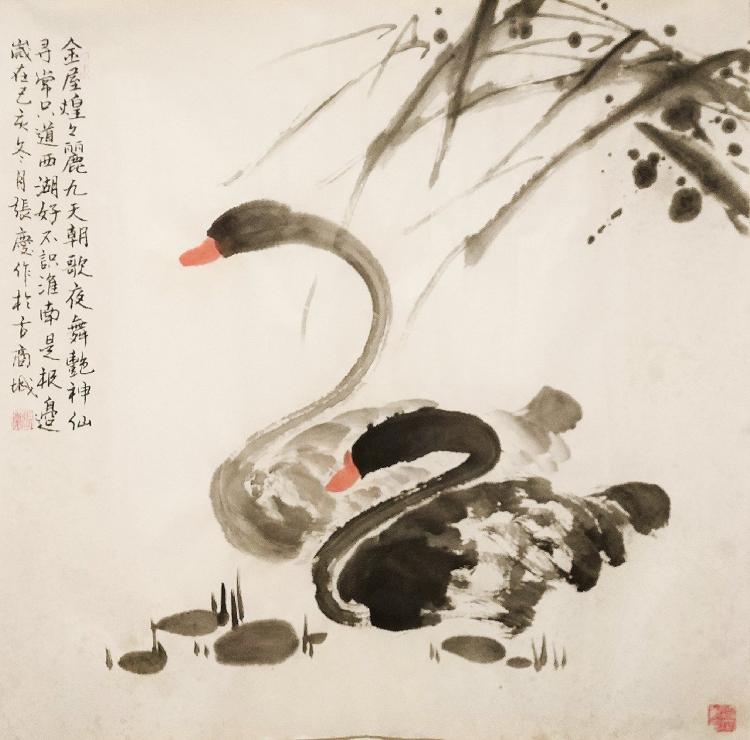 金屋煌々麗九天朝歌夜舞艷神仙
尋常只道西湖好不識淮南是報邉
歲在己亥冬月張慶作於古商城